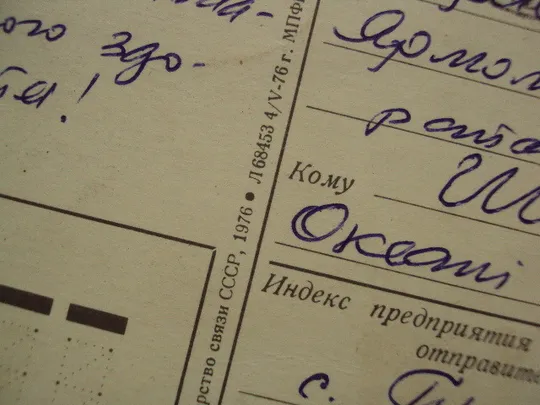 ого здо-
я!
арство связи СССР, 1976 • Л 68453 4/V-76 г. МПФ
Ярмол
райо
Кому
Ш
Океані
Индекс предприятия
отправите
с.